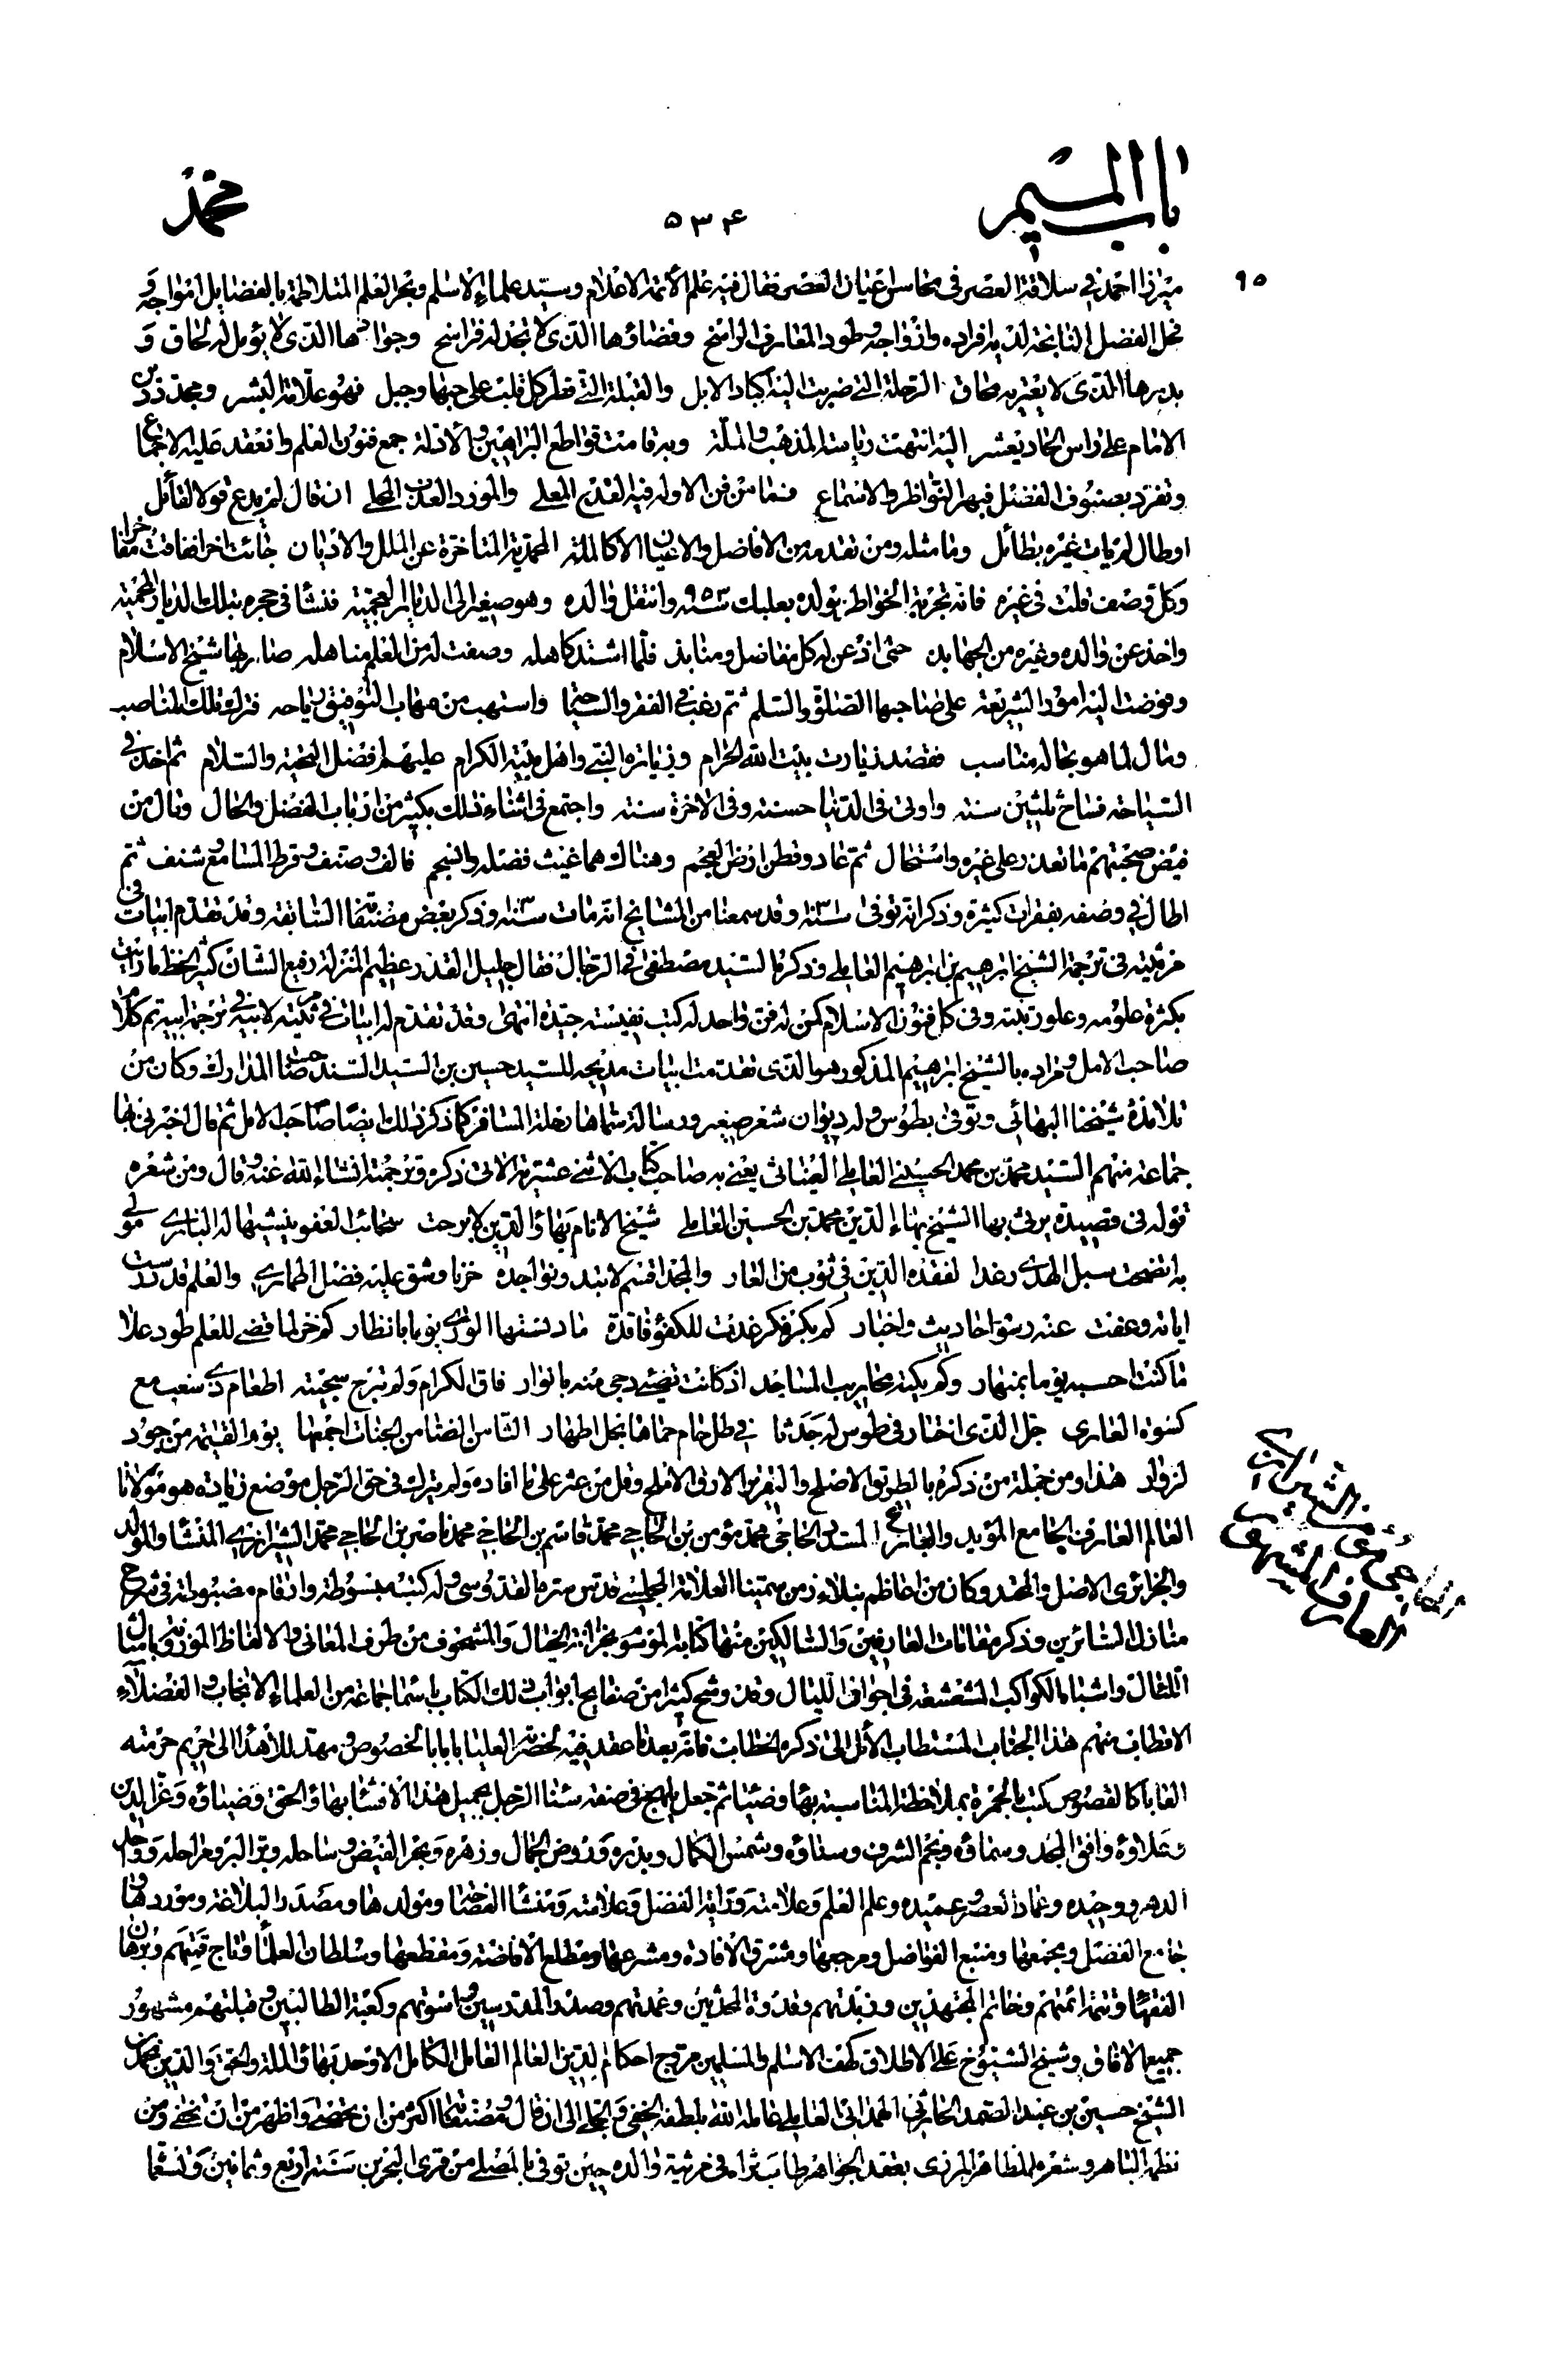 باب الميم
۵۳۴
محمد
۹۵
ميرزا احمد في سلافة العصر في محاسن اعيان العصر فقال فيه علم الأئمة الاعلام وسيد علماء الاسلام وبحر العلم المتلاطمة بالفضايل امواجه و
فحل الفضل الناتجة لديه افراده وازواجه وطود المعارف الراسخ وفضاؤها الذي لا تحد له فراسخ وجوادها الذي لا يؤمل له لحاق و
بدرها الذي لا يعتريه محاق الرحلة التي ضربت اليه اكباد الابل والقبلة التي فطر كل قلب على حبها وجبل فهو علامة البشر ومجدد دين
الامامة على راس الحادي عشر اليه انتهت رياسة المذهب والملة وبه قامت قواطع البراهين والأدلة جمع فنون العلم وانعقد عليه الاجماع
وتفرد بصنوف الفضل فبهر النواظر والاسماع فما من فن الا وله فيه القدح المعلى والمورد العذب المحلى ان قال لم يدع قولا لقائل
او طال لم يات غيره بطائل وما مثله ومن تقدمه من الافاضل والاعيان الا كالملة المحمدية المتاخرة عن الملل والاديان جائت اخرا ففاقت مفاخرا
وكل وصف قلت في غيره فانه تجربة الخواطر مولده بعلبك سنة ۹۵۳ وانتقل والده وهو صغير الى الديار العجمية فنشا في حجره بتلك الديار المحمية
واخذ عن والده وغيره من الجهابذ حتى اذعن له كل مناضل ومنابذ فلما اشتد كاهله وصفت له من العلم مناهله صار بها شيخ الاسلام
وفوضت اليه امور الشريعة على صاحبها الصلوة والسلم ثم رغب في الفقر والسياحة واستهب من مهاب التوفيق رياحه فترك تلك المناصب
ومال لما هو بحاله مناسب فقصد زيارة بيت الله الحرام وزيارة النبي واهل بيته الكرام عليهم افضل التحية والسلام ثم اخذ في
السياحة فساح ثلثين سنة واوتي في الدنيا حسنة وفي الاخرة حسنة واجتمع في اثناء ذلك بكثير من ارباب الفضل والحال ونال من
فيض صحبتهم ما تعذر على غيره واستحال ثم عاد وقطن ارض العجم وهناك همى غيث فضله وانسجم فالف وصنف وقرط المسامع وشنف ثم
اطال في وصفه بفقرات كثيرة وذكر انه توفى سنة ۱۰۳۱ وقد سمعنا من المشايخ انه مات سنة ۱۰۳۰ وذكر بعض مصنفاته السابقة وقد تقدم ابيات في
مرثيته في ترجمة الشيخ ابرهيم بن ابرهيم العاملي وذكره السيد مصطفى في الرجال فقال جليل القدر عظيم المنزلة رفيع الشان كثير الحفظ ما رايت
بكثرة علومه وعلو رتبته وفي كل فنون الاسلام كمن له فن واحد له كتب نفيسة جيدة انتهى وقد تقدم له ابيات في مرثيته لابيه في ترجمة ابيه تم كلام
صاحب الامل ومراده بالشيخ ابرهيم المذكور هو الذي تقدمت ابيات مديحه للسيد حسين بن السيد السند صاحب المدارك وكان من
تلامذة شيخنا البهائي وتوفى بطوس وله ديوان شعر صغير ورسالة سماها رحلة المسافر كما ذكر ذلك ايضا صاحب الامل ثم قال اخبرني بها
جماعة منهم السيد محمد بن محمد الحسيني العاملي العيناثي يعني به صاحب كتاب الاثنى عشرية الاتي ذكره وترجمته انشاء الله عنه وقال ومن شعره
قوله في قصيدة يرثي بها الشيخ بهاء الدين محمد بن الحسين العاملي شيخ الانام بهاؤ الدين لا برحت سحائب العفو ينشيها له الباري مولى
به اتضحت سبل الهدى وغدا لفقده الدين في ثوب من القار والمجد اقسم لا تبدو نواجذه حزنا وشق عليه فضل اطماري والعلم قد درست
اياته وعفت عنه رسوم احاديث واخبار كم بكر فكر غدت للكفؤ فاقدة ما دنستها الورى يوما بانظار كم خر لما قضى للعلم طود علا
ما كنت احسبه يوما بمنهار وكم بكته محاريب المساجد اذ كانت تضيئ دجى منه بانوار فاق الكرام ولم تبرح سجيته اطعام ذي سغب مع
كسوة العاري جل الذي اختار في طوس له جدثا في ظل حام حماها نجل اطهار الثامن الضامن الجنات اجمعها يوم القيمة من جود
لزوار هذا ومن جملة من ذكره بالطريق الاصلح والتقرير الارق الاملح وقل من عثر على ما افاده ولم يترك في حق الرجل موضع زيادة هو مولانا
العالم العارف الجامع المؤيد الحاجي محمد مؤمن بن الحاجي محمد قاسم بن الحاجي محمد ناصر بن الحاجي محمد الشيرازي المنشأ والمولد
والجزائري الاصل والمحتد وكان من اعاظم نبلاء زمن سمينا العلامة المجلسي قدس سره القدوسي وله كتب مبسوطة وارقام مضبوطة في شرح
منازل السائرين وذكر مقامات العارفين والسالكين منها كتابه الموسوم بخزانة الخيال والمشحوف من طرف المعاني والالفاظ الموزونة بامثال
اللئال واشباه الكواكب المشعشعة في اجواف الليال وقد وشح كثيرا من صفايح ابواب ذلك الكتاب باسماء جماعة من العلماء الانجاب والفضلاء
الاقطاب منهم هذا الجناب المستطاب الأئل الى ذكره الخطاب فانه بعد ما عقد فيه لحضرته العليا بابا بالخصوص ومهد للاهداء الى حريم حرمته
القابا كالفصوص كتب بالحمرة بملاحظة المناسبة بهاء وضياء ثم جعل يلهج في صفة سناء الرجل بجميل هذا الانشاء بهاؤ الحق وضياؤه وعز الدين
وعلاؤه وافق المجد وسماؤه ونجم الشرف وسناؤه وشمس الكمال وبدره وروض الجمال وزهره وبحر الفيض وساحله وبر البر ومراحله وواحد
الدهر ووحيده وعماد العصر وعميده وعلم العلم وعلامته وراية الفضل وعلامته ومنشا الفصاحة ومولدها ومصدر البلاغة وموردها
جامع الفضل ومجمعها ومنبع الفواضل ومرجعها ومشرق الافادة ومشرعها ومطلع الافاضة ومقطعها وسلطان العلماء وتاج قمتهم وبرهان
الفقهاء وتتمة ائمتهم وخاتم المجتهدين وزبدتهم وقدوة المحدثين وعمدتهم وصدر المدرسين واسوتهم وكعبة الطالبين وقبلتهم مشهور
جميع الافاق وشيخ الشيوخ على الاطلاق كهف الاسلم والمسلمين مروج احكام الدين العالم العامل الكامل الاوحد بهاؤ الملة والحق والدين محمد بن
الشيخ حسين بن عبد الصمد الحارثي الهمداني العاملي عامله الله بلطفه الخفي والجلي الى ان قال ومصنفاته اكثر من ان تحصى واظهر من ان تخفى ومن
نظمه الباهر وشعره الطاهر المزري بعقد الجواهر طاب ثراه في مرثية والده حين توفى بالمصلى من قرى البحرين سنة اربع وثمانين وتسعما